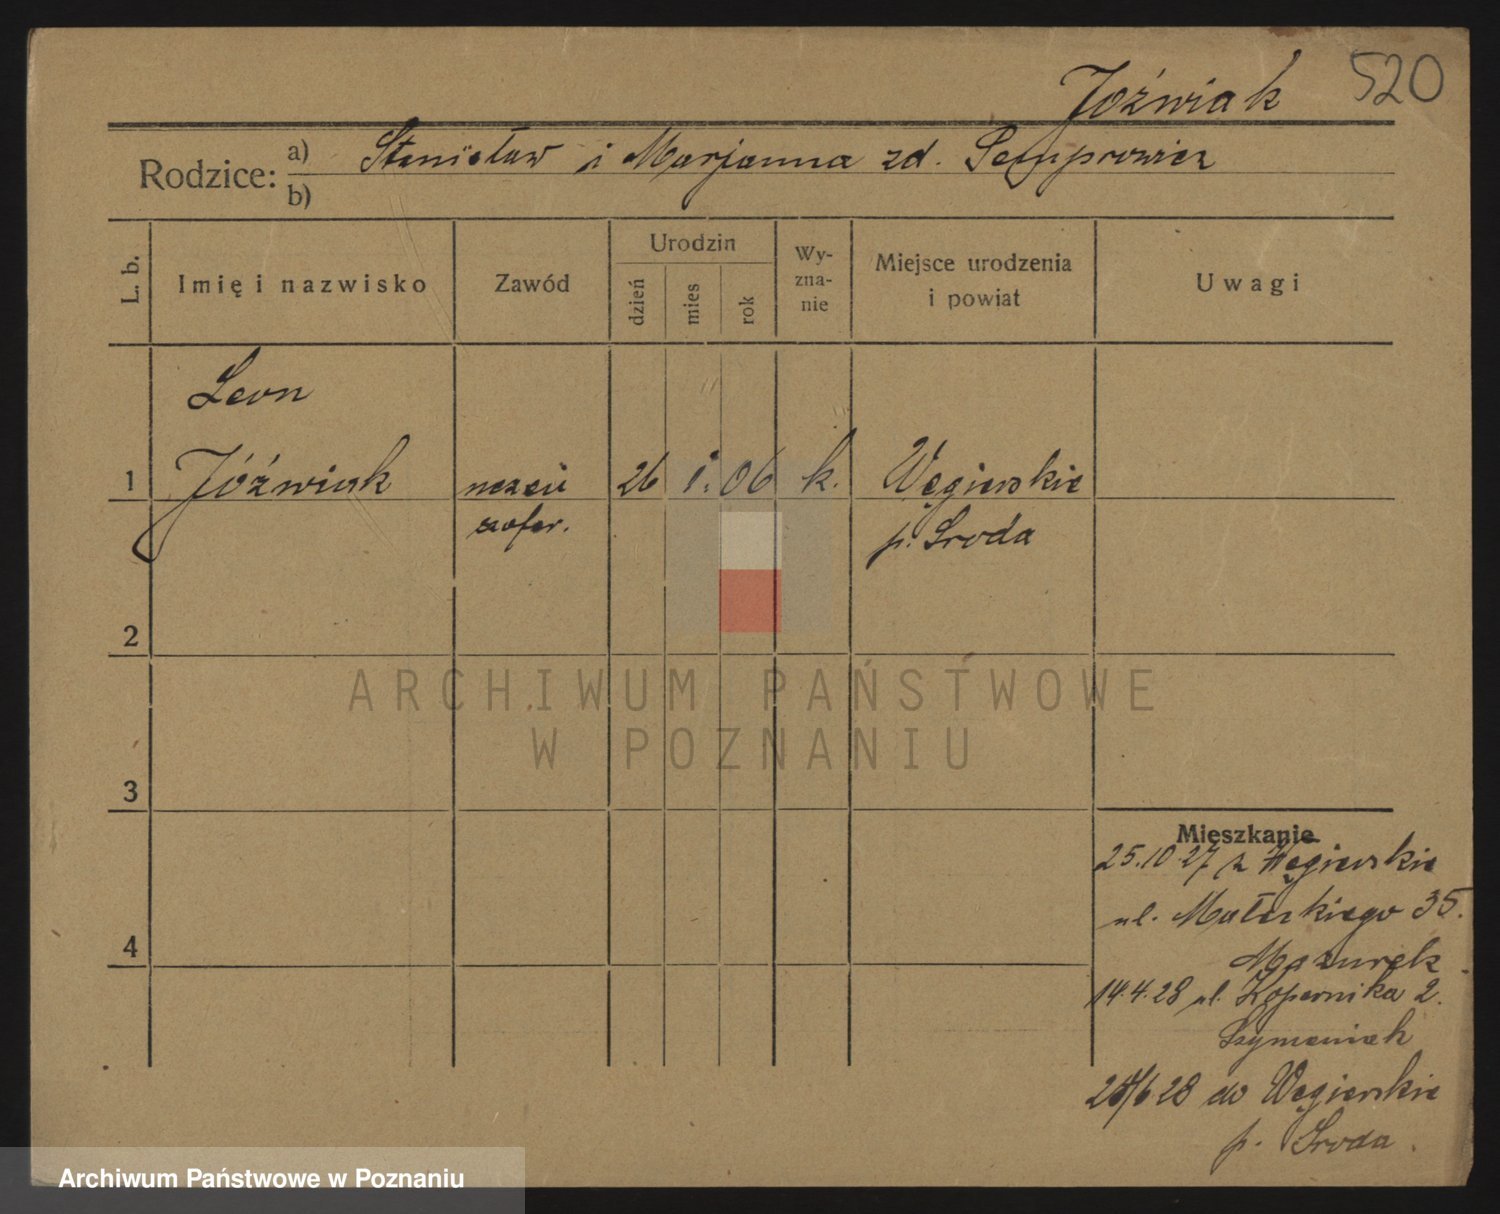 Jóźwiak 520
Rodzice: a) Stanisław i Marjanna zd. Semprowicz
b)
L. b. Imię i nazwisko Zawód Urodzin dzień mies rok Wyznanie Miejsce urodzenia i powiat Uwagi
Leon
1 Jóźwiak uczeń 26 i. 06 k. Węgierskie
szofer. p. Sroda
2
ARCHIWUM PAŃSTWOWE
W POZNANIU
3
Mieszkanie
25.10.27 z Węgierskie
ul. Małeckiego 35.
Mazurek
4
14.4.28 ul. Kopernika 2.
Szymaniak
28 do Węgierskie
p. Sroda.
Archiwum Państwowe w Poznaniu